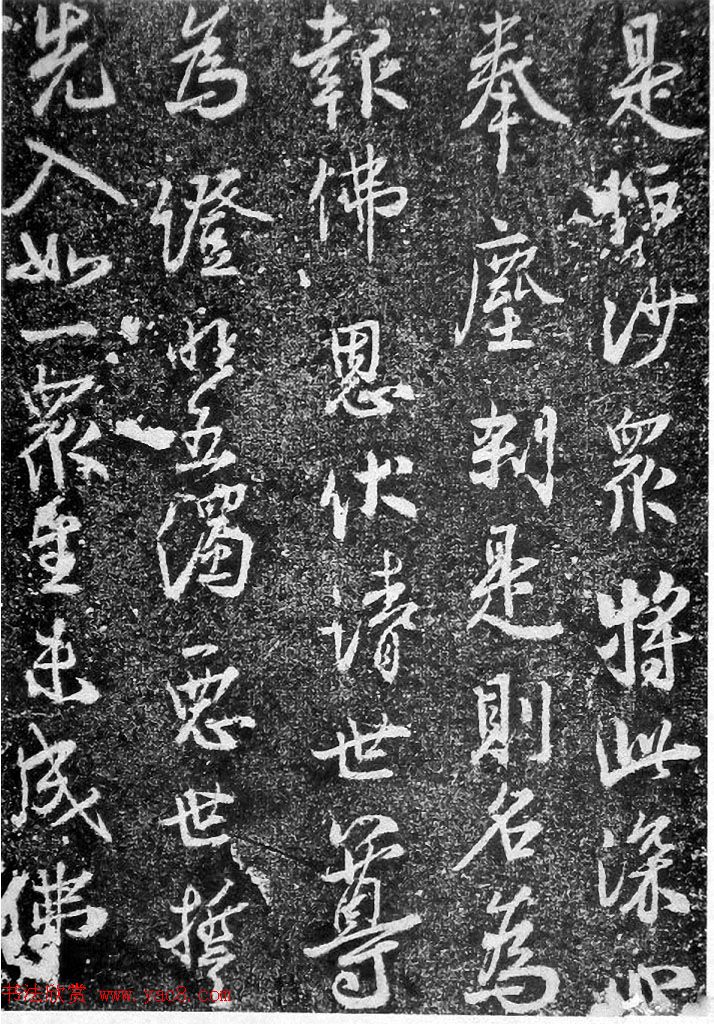 是恒沙眾將此深心
奉塵剎是則名為
報佛恩伏請世尊
為證明五濁惡世誓
先入如一眾生未成佛
书法欣赏 www.yac8.com